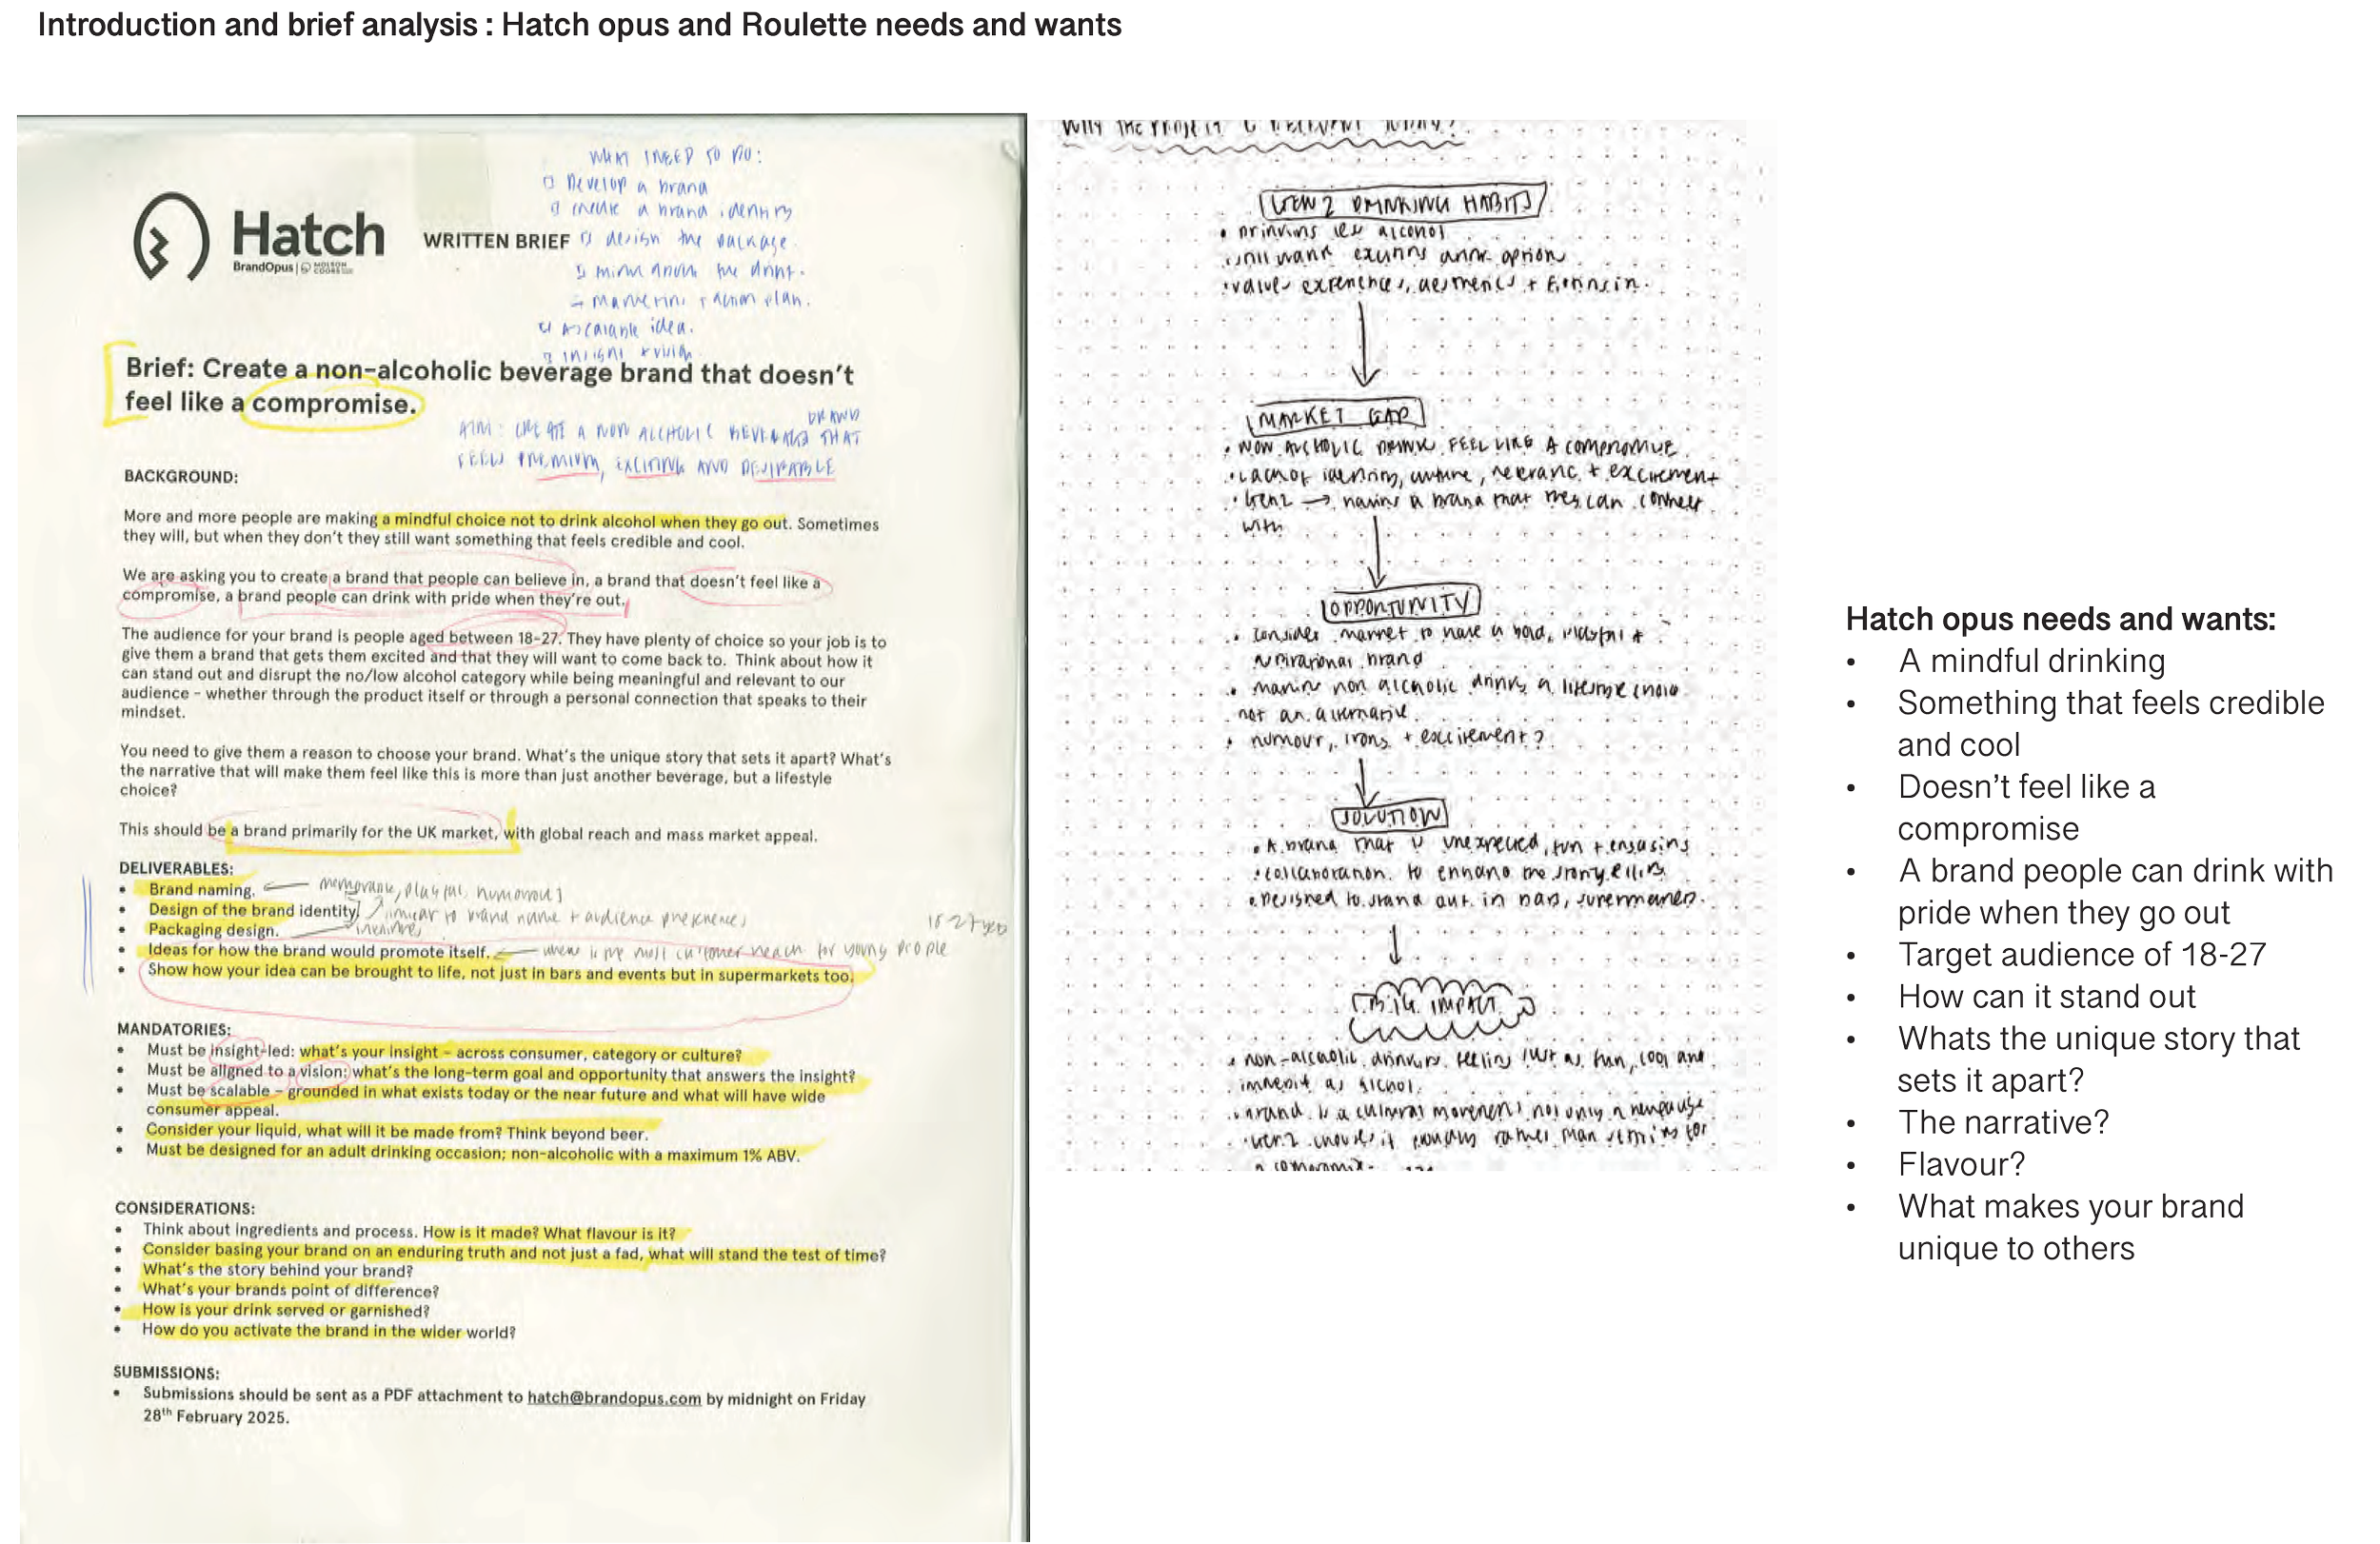 Introduction and brief analysis : Hatch opus and Roulette needs and wants
WHAT I NEED TO DO:
Develop a brand
create a brand identity
design the package
think about the drink.
marketing + action plan.
A scalable idea.
insight + vision
Hatch
BrandOpus | MOLSON COORS
WRITTEN BRIEF
Brief: Create a non-alcoholic beverage brand that doesn't
feel like a compromise.
BRAND
AIM: CREATE A NON ALCHOLIC BEVERAGE THAT
FEELS PREMIUM, EXCITING AND DESIRABLE
BACKGROUND:
More and more people are making a mindful choice not to drink alcohol when they go out. Sometimes
they will, but when they don't they still want something that feels credible and cool.
We are asking you to create a brand that people can believe in, a brand that doesn't feel like a
compromise, a brand people can drink with pride when they're out.
The audience for your brand is people aged between 18-27. They have plenty of choice so your job is to
give them a brand that gets them excited and that they will want to come back to. Think about how it
can stand out and disrupt the no/low alcohol category while being meaningful and relevant to our
audience - whether through the product itself or through a personal connection that speaks to their
mindset.
You need to give them a reason to choose your brand. What's the unique story that sets it apart? What's
the narrative that will make them feel like this is more than just another beverage, but a lifestyle
choice?
This should be a brand primarily for the UK market, with global reach and mass market appeal.
DELIVERABLES:
• Brand naming. memorable, playful, humorous
• Design of the brand identity. similar to brand name + audience preferences
• Packaging design.
18-27 yrs
• Ideas for how the brand would promote itself. where is the most customer reach for young people
• Show how your idea can be brought to life, not just in bars and events but in supermarkets too.
MANDATORIES:
• Must be insight-led: what's your insight - across consumer, category or culture?
• Must be aligned to a vision: what's the long-term goal and opportunity that answers the insight?
• Must be scalable - grounded in what exists today or the near future and what will have wide
consumer appeal.
• Consider your liquid, what will it be made from? Think beyond beer.
• Must be designed for an adult drinking occasion; non-alcoholic with a maximum 1% ABV.
CONSIDERATIONS:
• Think about ingredients and process. How is it made? What flavour is it?
• Consider basing your brand on an enduring truth and not just a fad, what will stand the test of time?
• What's the story behind your brand?
• What's your brands point of difference?
• How is your drink served or garnished?
• How do you activate the brand in the wider world?
SUBMISSIONS:
• Submissions should be sent as a PDF attachment to hatch@brandopus.com by midnight on Friday
28th February 2025.
WHY THE PROJECT IS RELEVANT TODAY?
GEN Z DRINKING HABITS
• Drinking less alcohol
• still want exciting option
• value experiences, aesthetics +
MARKET GAP
• NON ALCHOLIC DRINK FEEL LIKE A compromise
• Lack of identity, culture, + excitement
• Gen z → having a brand that they can connect
with
OPPORTUNITY
• consider market to have a bold, playful +
aspirational brand
• making non alcoholic drinks a lifestyle choice
not an alternative.
• humour, irony + excitement?
SOLUTION
• A brand that is unexpected, fun + engaging
• collaboration to enhance the story telling
• Designed to stand out in bars, supermarkets.
BIG IMPACT
• non-alcoholic drinkers feeling just as fun, cool and
as alchol.
• brand is a cultural movement not only a
• Gen z chooses it rather than settling for
a compromise.
Hatch opus needs and wants:
• A mindful drinking
• Something that feels credible
and cool
• Doesn't feel like a
compromise
• A brand people can drink with
pride when they go out
• Target audience of 18-27
• How can it stand out
• Whats the unique story that
sets it apart?
• The narrative?
• Flavour?
• What makes your brand
unique to others